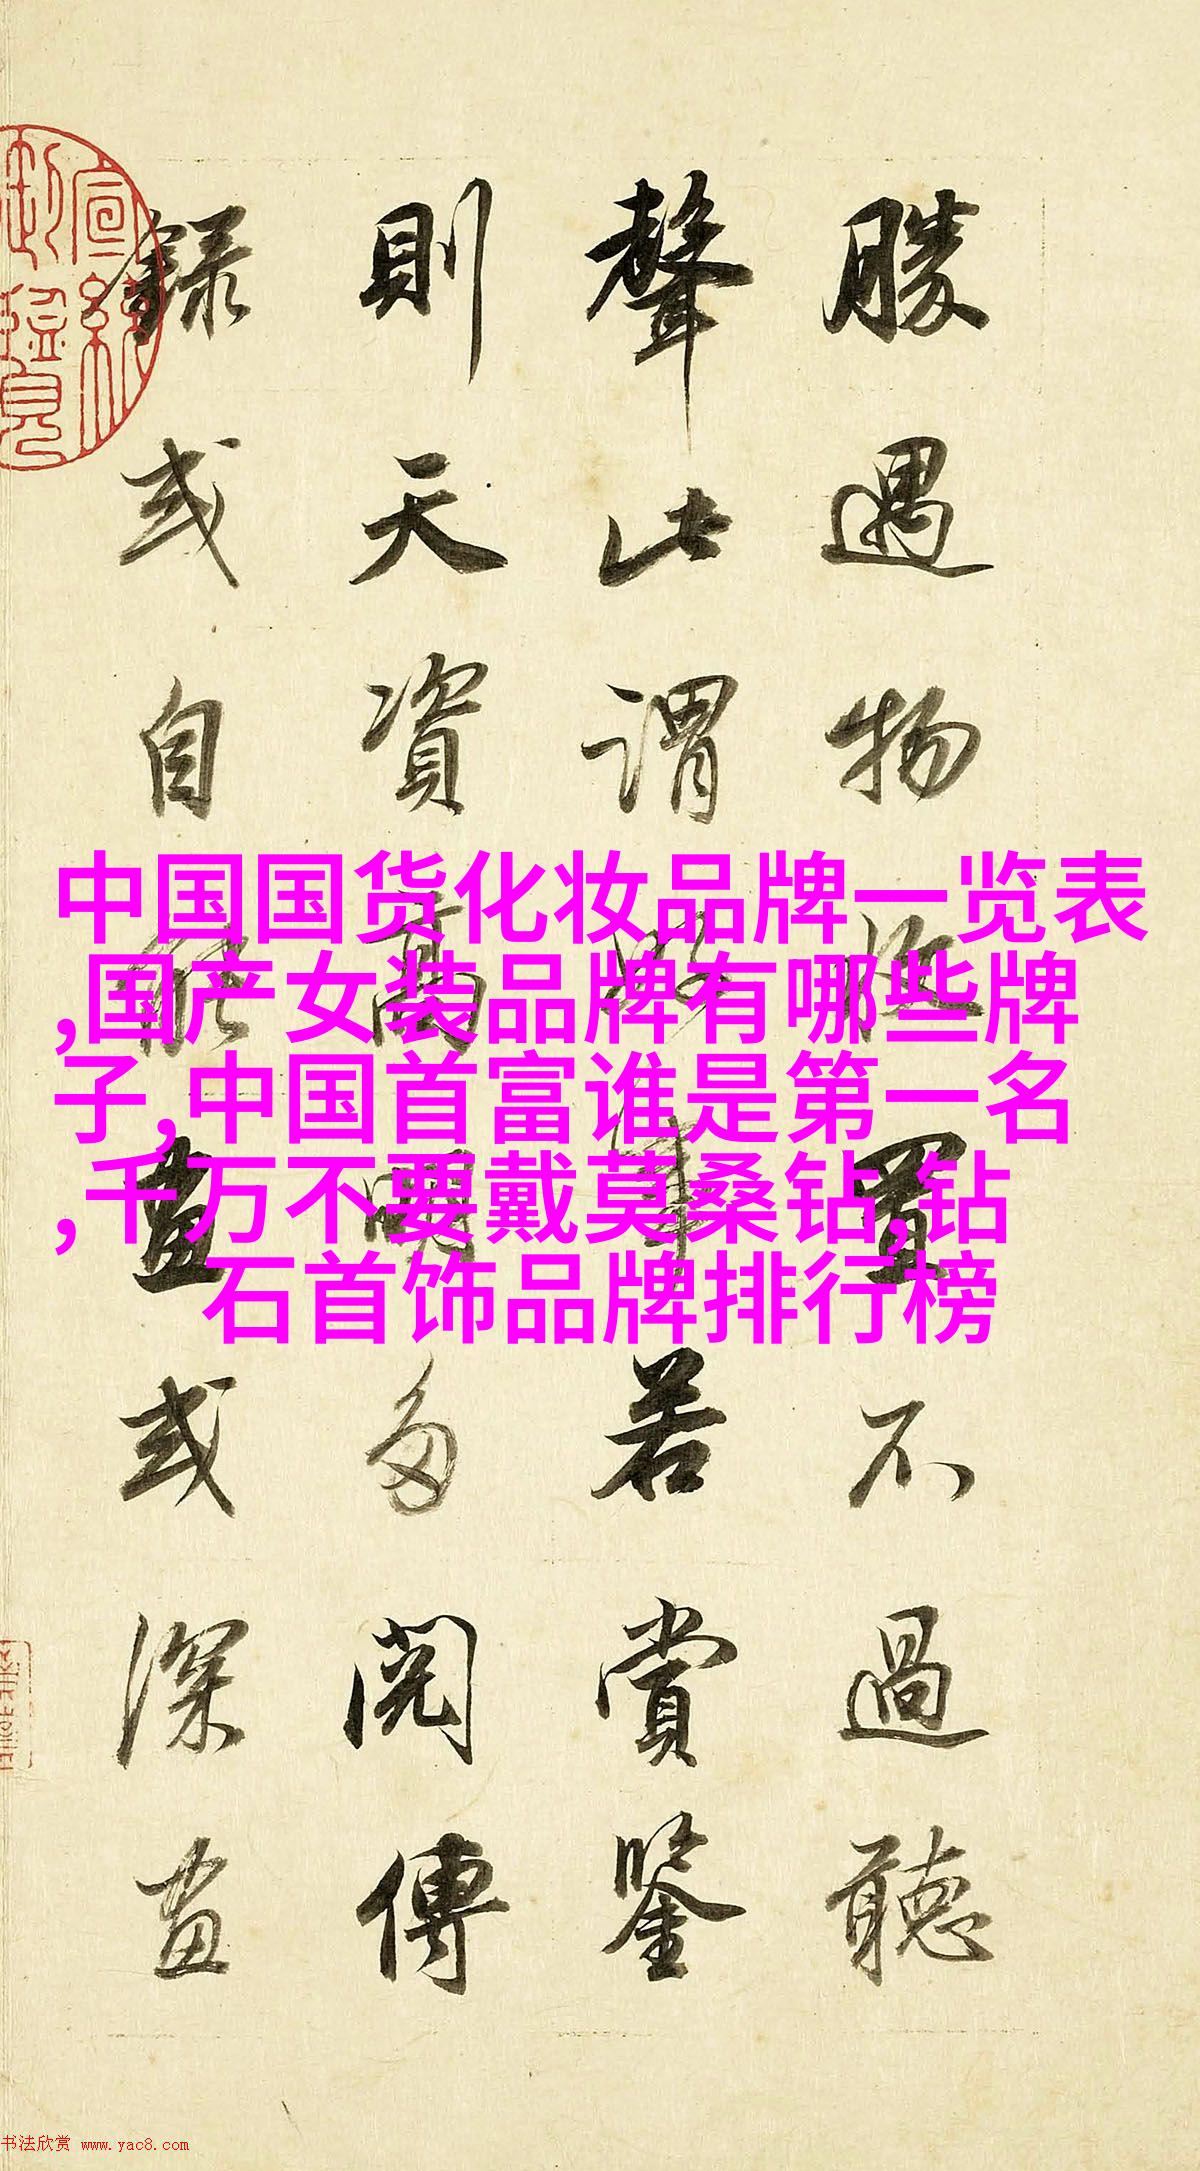 勝遇物收置不過聽
聲此謂好事若賞鑒
則天資高明多閱傳
錄或自能畫或深畫
宣統御覽
中国国货化妆品牌一览表
,国产女装品牌有哪些牌
子,中国首富谁是第一名
,千万不要戴莫桑钻,钻
石首饰品牌排行榜
书法欣赏 www.yac8.com